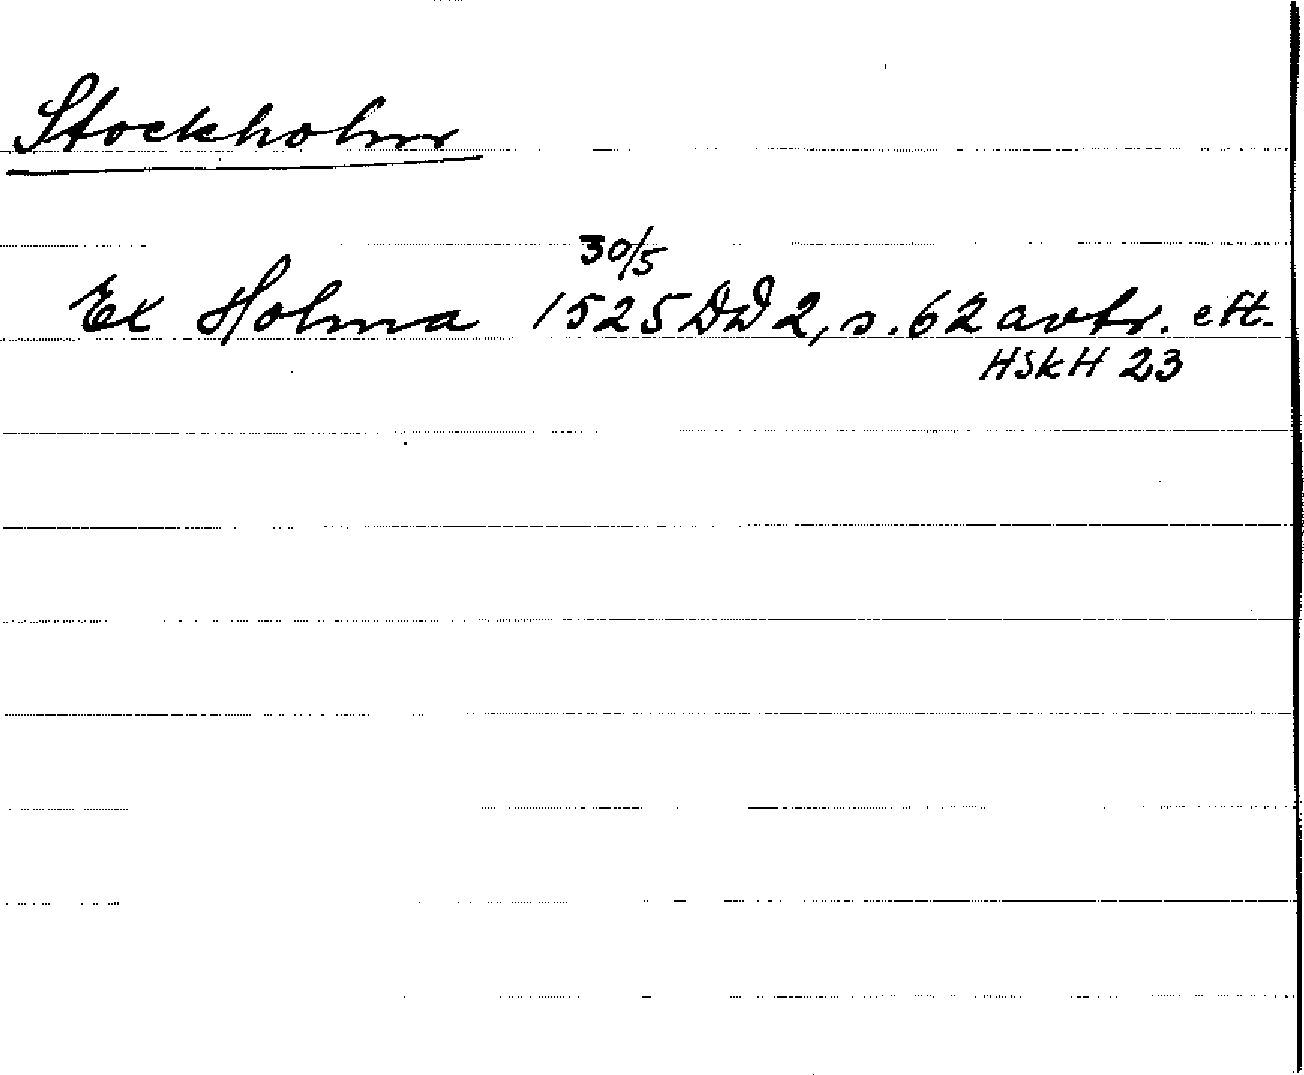 Stockholm
30/5
Ex Holma 1525 DD 2, s. 62 avtr. eft.
HSkH 23